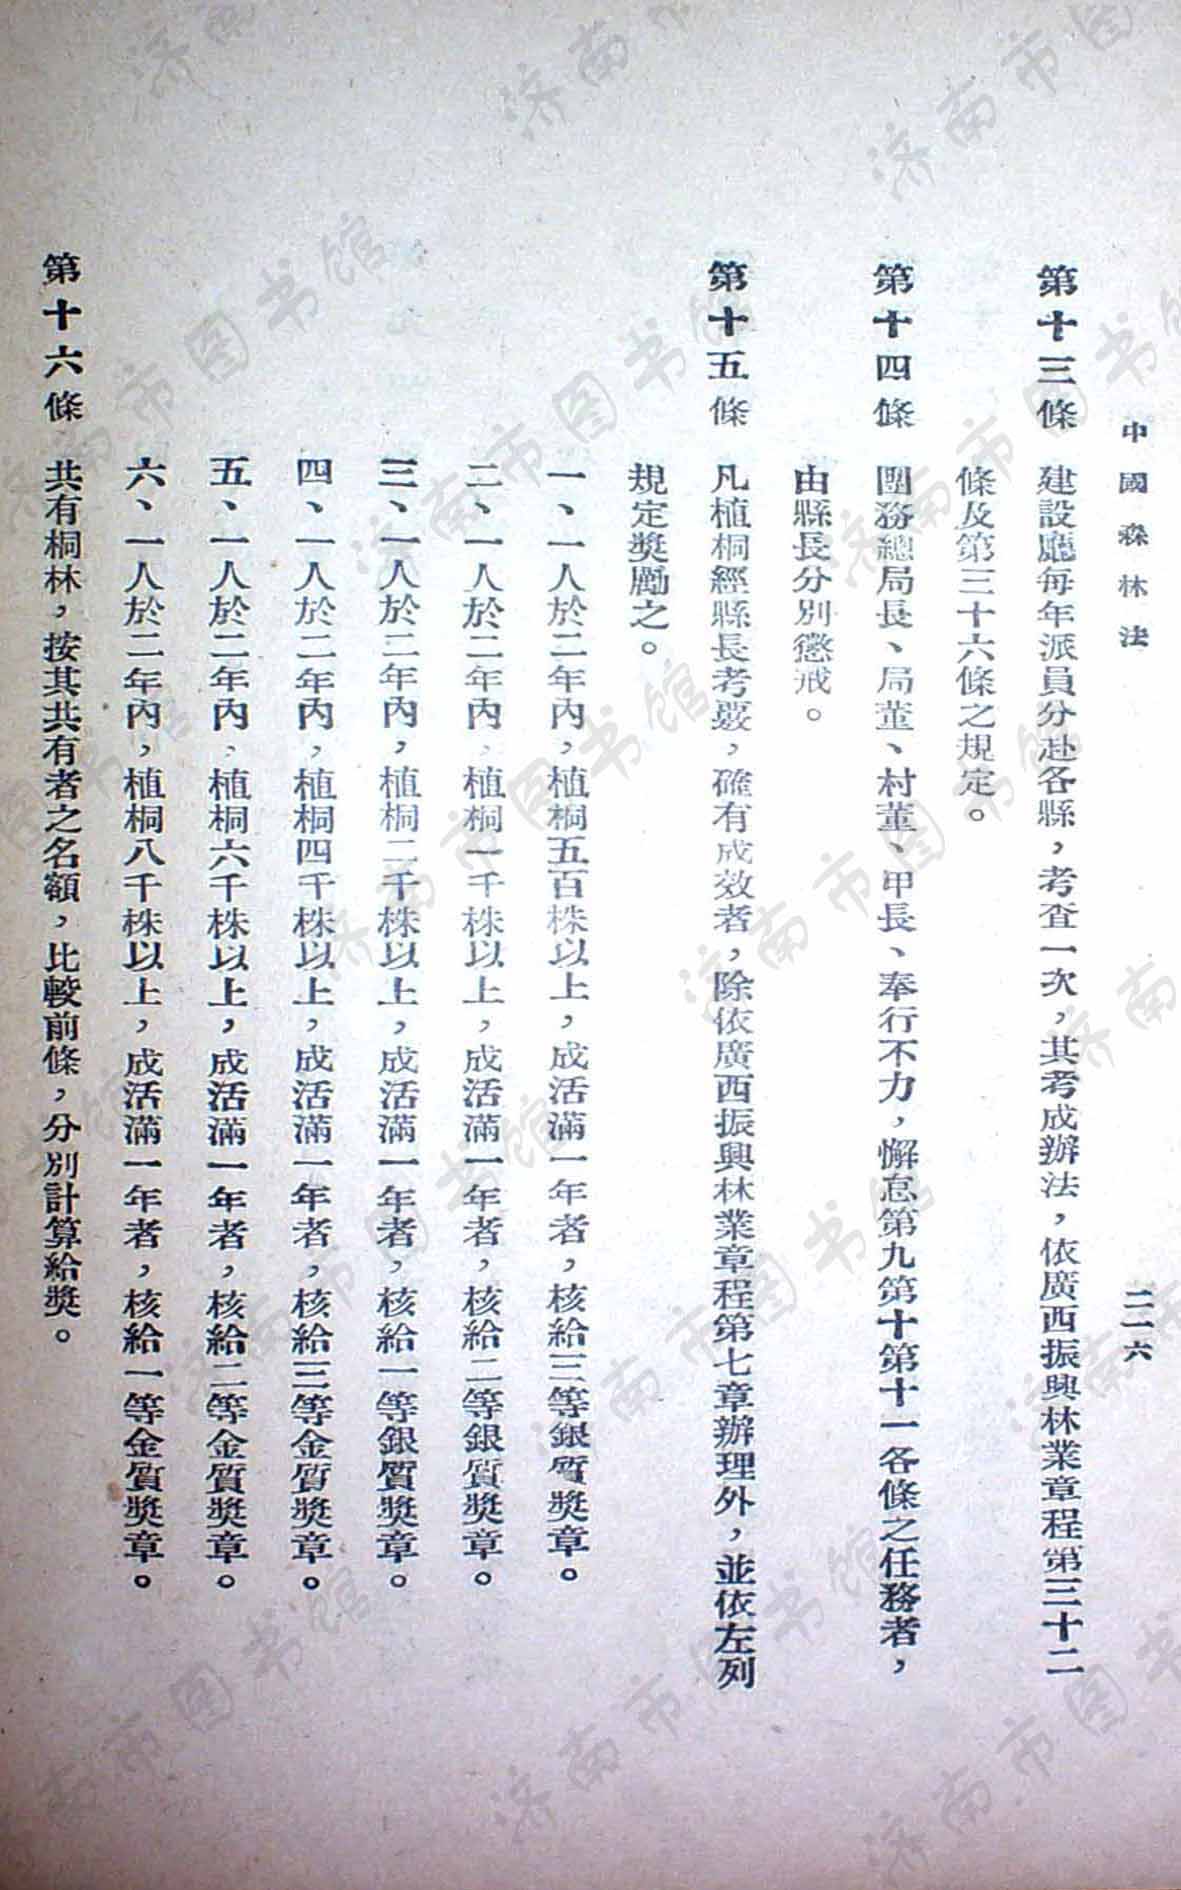 中國森林法
二一六
第十三條　建設廳每年派員分赴各縣，考查一次，其考成辦法，依廣西振興林業章程第三十二
條及第三十六條之規定。
第十四條　團務總局長、局董、村董、甲長、奉行不力，懈怠第九第十第十一各條之任務者，
由縣長分別懲戒。
第十五條　凡植桐經縣長考覈，確有成效者，除依廣西振興林業章程第七章辦理外，並依左列
規定獎勵之。
一、一人於二年內，植桐五百株以上，成活滿一年者，核給三等銀質獎章。
二、一人於二年內，植桐一千株以上，成活滿一年者，核給二等銀質獎章。
三、一人於二年內，植桐二千株以上，成活滿一年者，核給一等銀質獎章。
四、一人於二年內，植桐四千株以上，成活滿一年者，核給三等金質獎章。
五、一人於二年內，植桐六千株以上，成活滿一年者，核給二等金質獎章。
六、一人於二年內，植桐八千株以上，成活滿一年者，核給一等金質獎章。
第十六條　共有桐林，按其共有者之名額，比較前條，分別計算給獎。
济南市图书馆